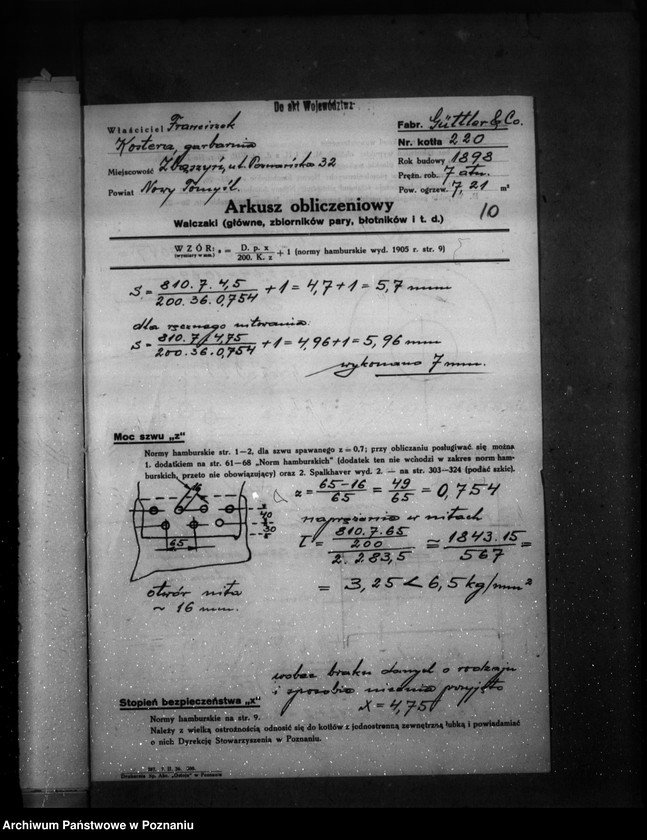 Do akt Województwa
Właściciel Franciszek
Kostera, garbarnia
Miejscowość Zbąszyń, ul. Poznańska 32
Powiat Nowy Tomyśl.
Fabr. Güttler & Co.
Nr. kotła 220
Rok budowy 1898
Prężn. rob. 7 atn.
Pow. ogrzew. 7,21 m²
Arkusz obliczeniowy
10
Walczaki (główne, zbiorników pary, błotników i t. d.)
WZÓR: s = D. p. x / 200. K. z + 1 (normy hamburskie wyd. 1905 r. str. 9)
(wymiary w mm.)
S = 810. 7. 4,5 / 200. 36. 0,754 + 1 = 4,7 + 1 = 5,7 mm
dla ręcznego nitowania:
S = 810. 7. 4,75 / 200. 36. 0,754 + 1 = 4,96 + 1 = 5,96 mm
wykonano 7 mm.
Moc szwu „z"
Normy hamburskie str. 1—2, dla szwu spawanego z = 0,7; przy obliczaniu posługiwać się można
1. dodatkiem na str. 61—68 „Norm hamburskich" (dodatek ten nie wchodzi w zakres norm ham-
burskich, przeto nie obowiązujący) oraz 2. Spalkhaver wyd. 2. — na str. 303—324 (podać szkic).
z = 65-16 / 65 = 49 / 65 = 0,754
40
30
65
naprężenie w nitach
τ = 810. 7. 65 / 200 / 2. 283,5 = 1843. 15 / 567 =
= 3,25 < 6,5 kg/mm²
otwór nita
~ 16 mm.
wobec braku danych o rodzaju
i sposobie przyjęto
X = 4,75
Stopień bezpieczeństwa „x"
Normy hamburskie na str. 9.
Należy z wielką ostrożnością odnosić się do kotłów z jednostronną zewnętrzną łubką i powiadamiać
o nich Dyrekcję Stowarzyszenia w Poznaniu.
Drukarnia Sp. Akc. „Ostoja" w Poznaniu
Archiwum Państwowe w Poznaniu